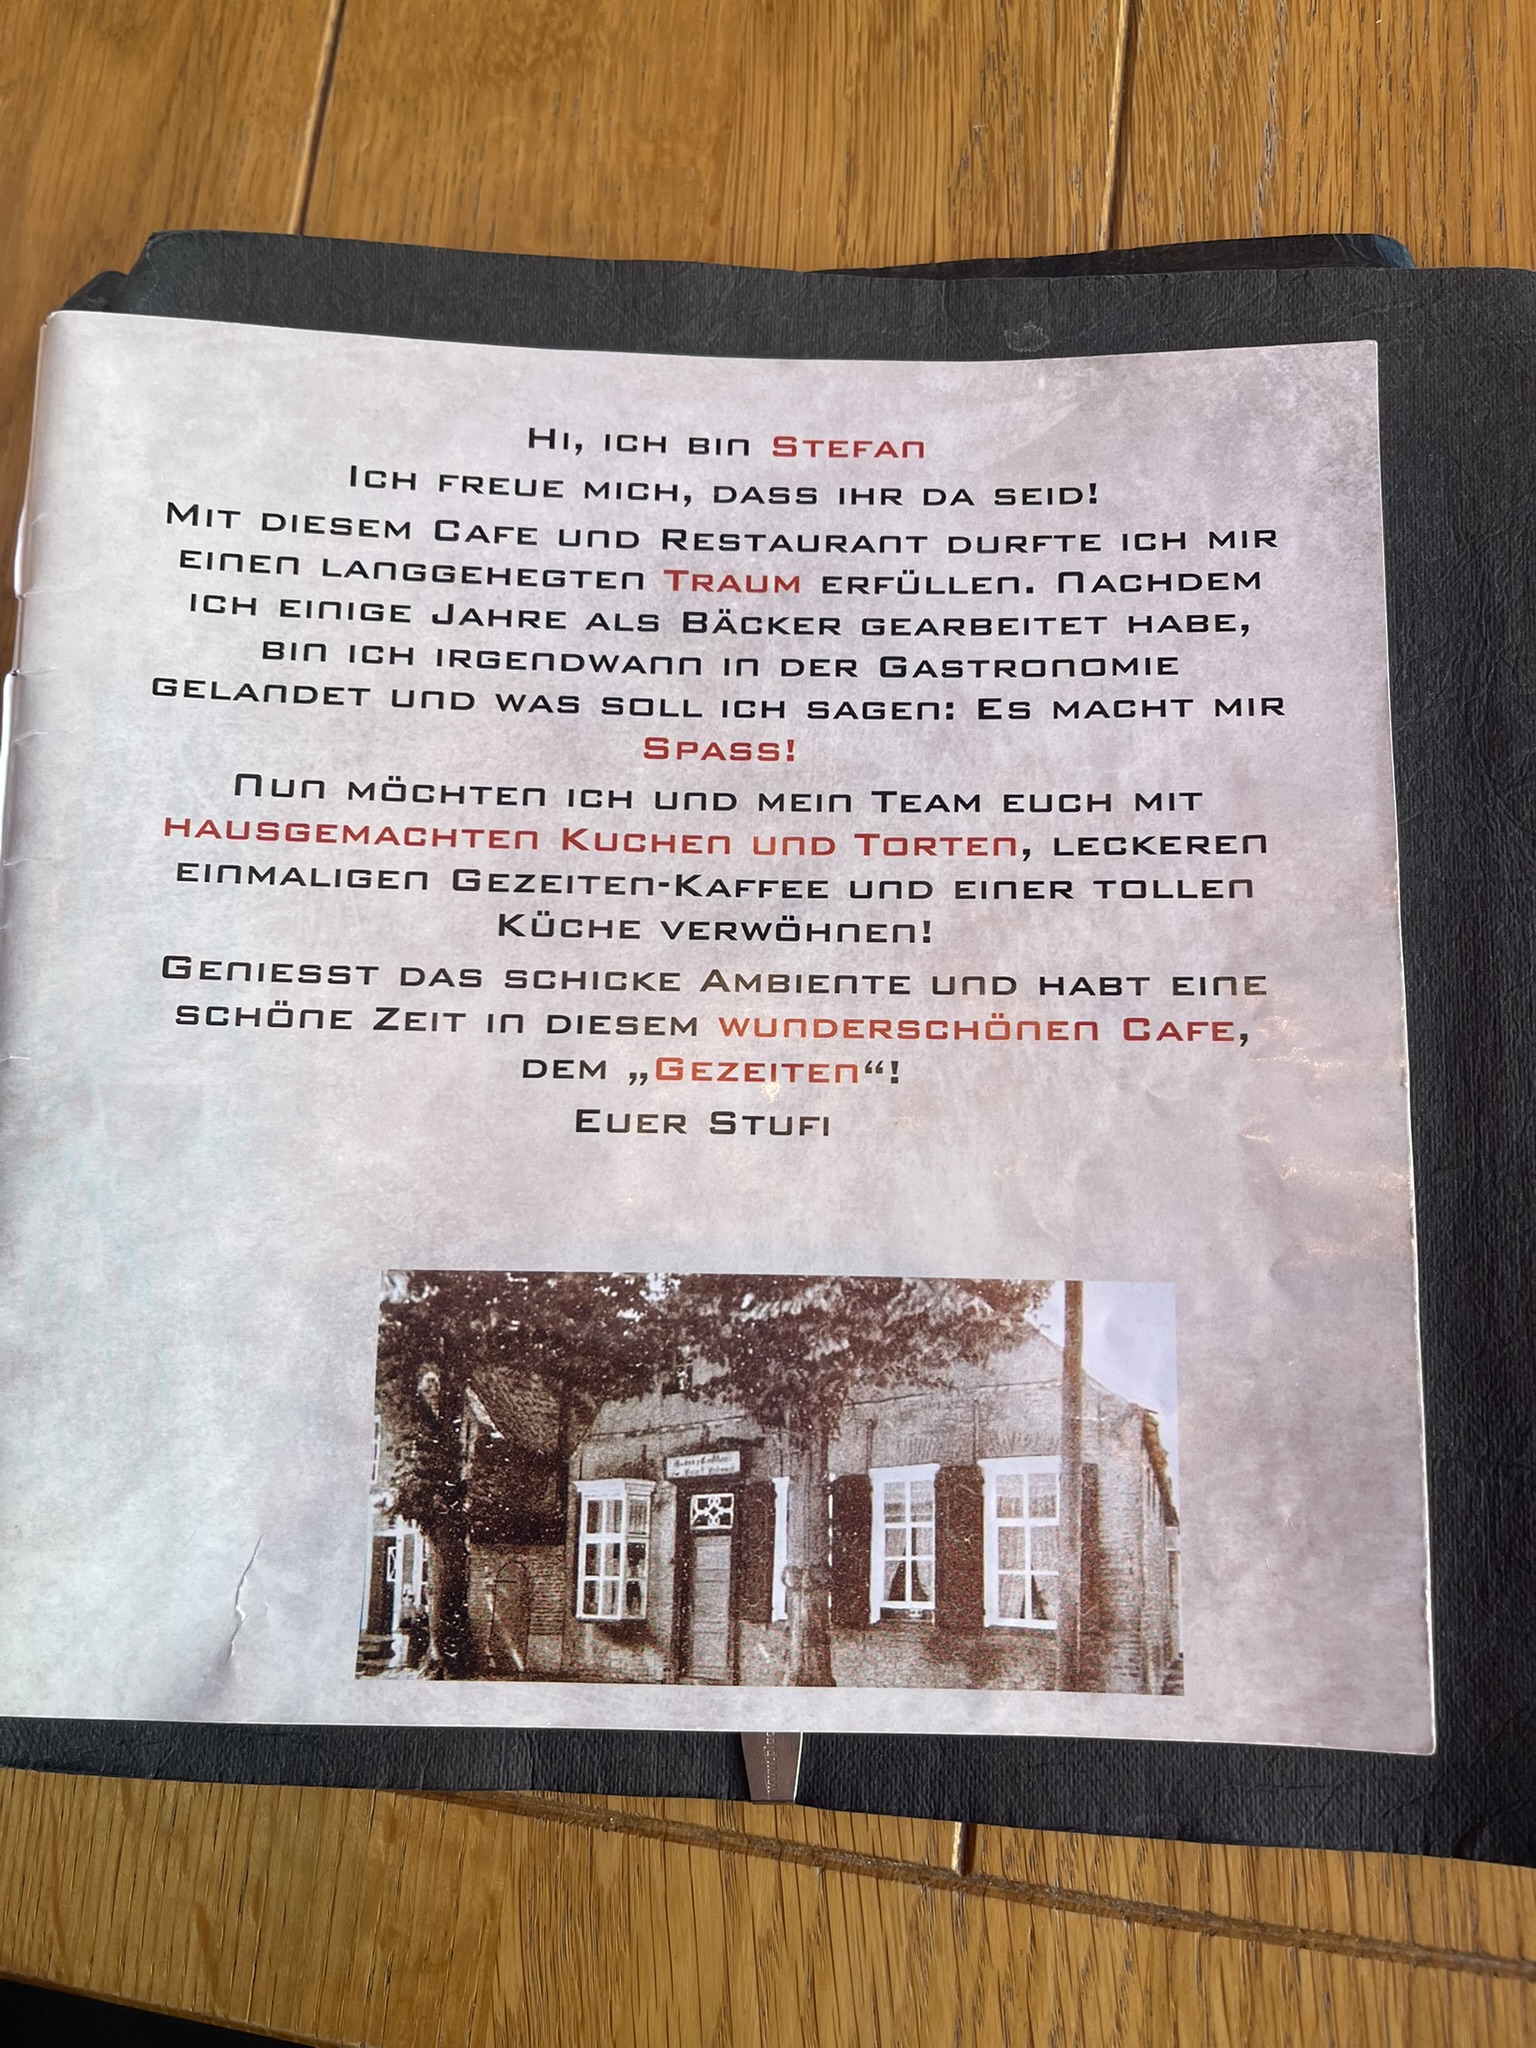 Hi, ich bin Stefan
Ich freue mich, dass ihr da seid!
Mit diesem Cafe und Restaurant durfte ich mir
einen langgehegten Traum erfüllen. Nachdem
ich einige Jahre als Bäcker gearbeitet habe,
bin ich irgendwann in der Gastronomie
gelandet und was soll ich sagen: Es macht mir
Spass!
Nun möchten ich und mein Team euch mit
hausgemachten Kuchen und Torten, leckeren
einmaligen Gezeiten-Kaffee und einer tollen
Küche verwöhnen!
Geniesst das schicke Ambiente und habt eine
schöne Zeit in diesem wunderschönen Cafe,
dem „Gezeiten“!
Euer Stufi